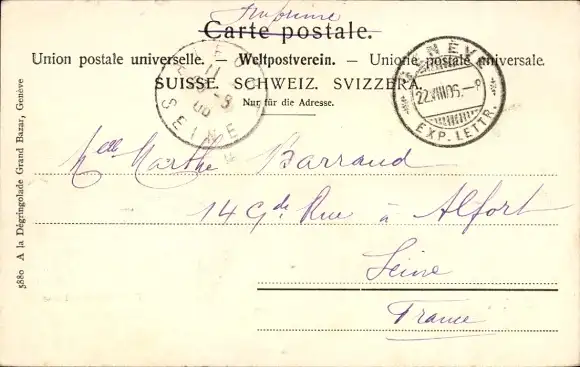 Imprimé
Carte postale.
Union postale universelle. — Weltpostverein. — Unione postale universale.
SUISSE. SCHWEIZ. SVIZZERA.
Nur für die Adresse.
GENÈVE
22.VIII.05.—8
EXP. LETTR.
SEINE
Melle Marthe Barraud
14 Gde Rue à Alfort
Seine
France
5880 A la Dégringolade Grand Bazar, Genève